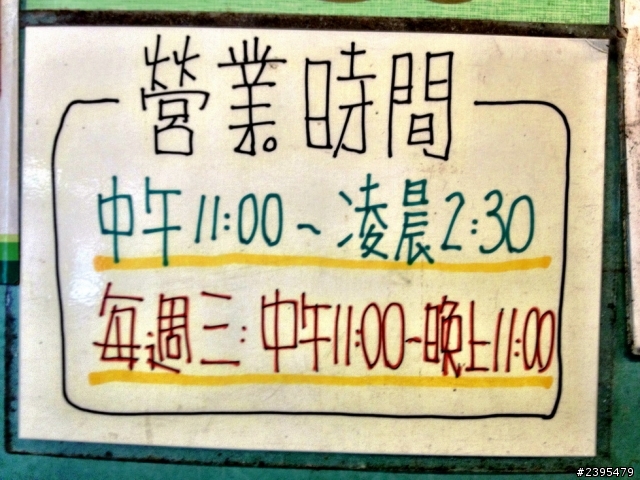 營業時間
中午11:00~凌晨2:30
每週三:中午11:00~晚上11:00
#2395479